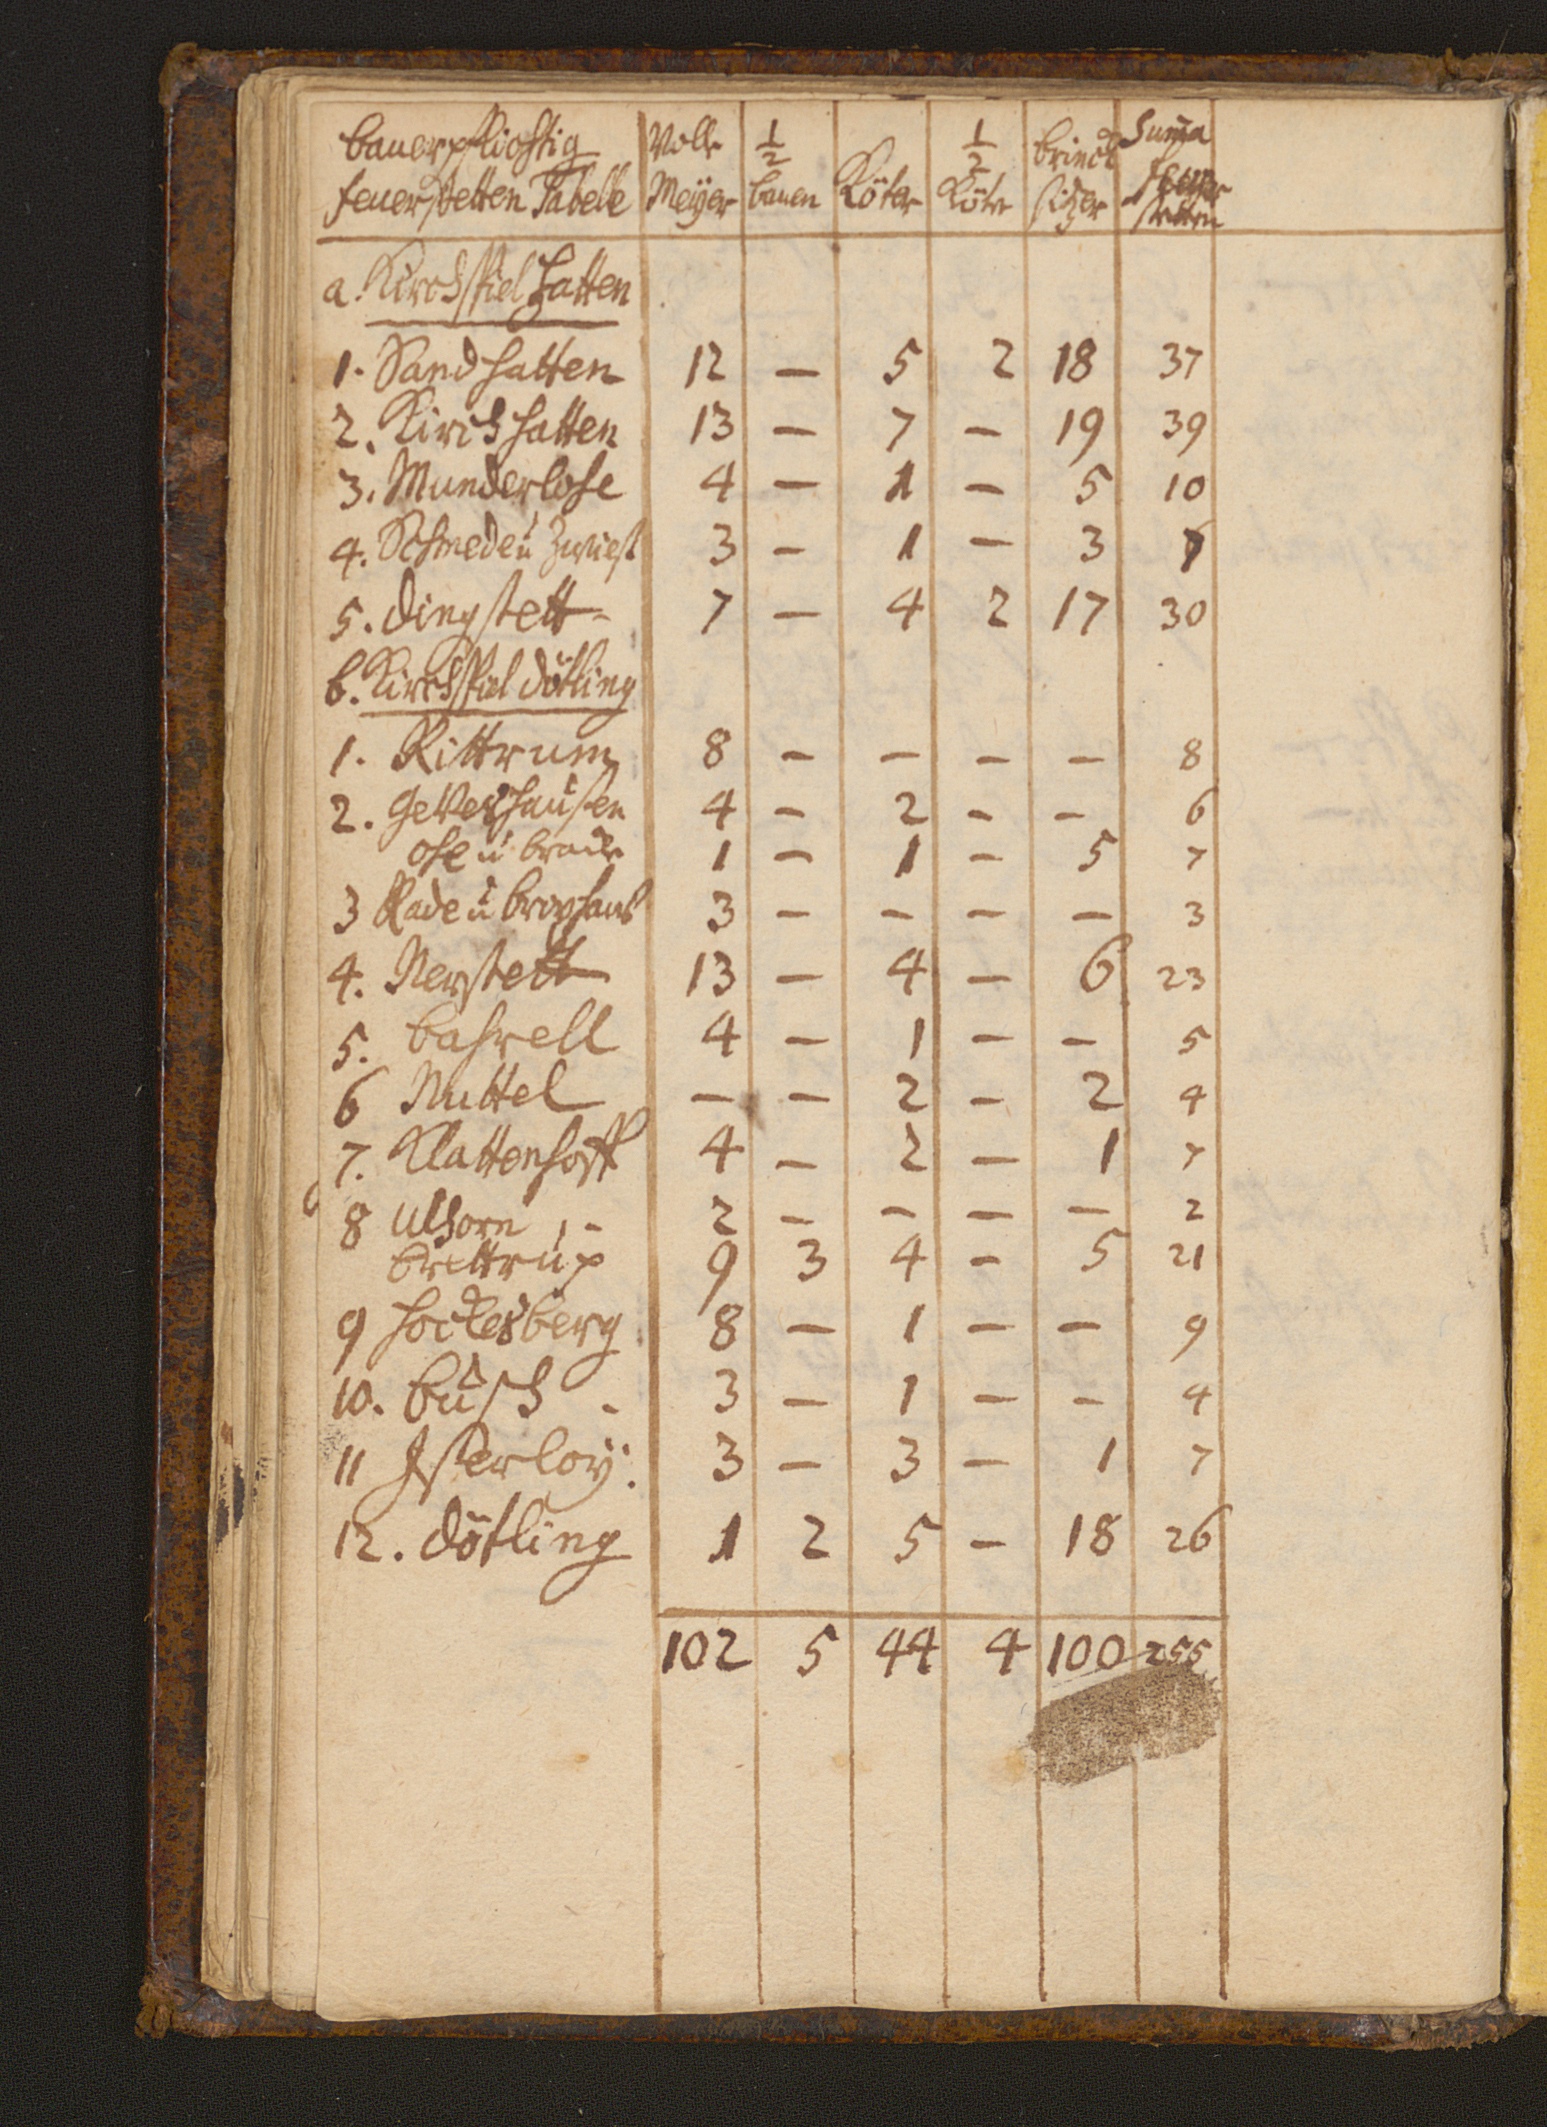 bauerpflichtig feuerstetten Tabelle | Volle Meÿer | 1/2 bauen | Köter | 1/2 Köter | brinck sitzer | Summa feuer stetten
a. Kirchspiel Hatten
1. Sandhatten 12 — 5 2 18 37
2. Kirchhatten 13 — 7 — 19 39
3. Munderlohe 4 — 1 — 5 10
4. Schmede u 3 — 1 — 3 7
5. dingstett 7 — 4 2 17 30
b. Kirchspiel dötling
1. Rittrum 8 — — — — 8
2. geveshausen 4 — 2 — — 6
ohe u brade 1 — 1 — 5 7
3 Rade u 3 — — — — 3
4. Nerstett 13 — 4 — 6 23
5. basrell 4 — 1 — — 5
6 Nuttel — — 2 — 2 4
7. Klattenhoff 4 — 2 — 1 7
8 Ulhorn 2 — — — — 2
brettrup 9 3 4 — 5 21
9 hockesberg 8 — 1 — — 9
10. busch 3 — 1 — — 4
11 Isterloÿ 3 — 3 — 1 7
12. dötling 1 2 5 — 18 26
102 5 44 4 100 255